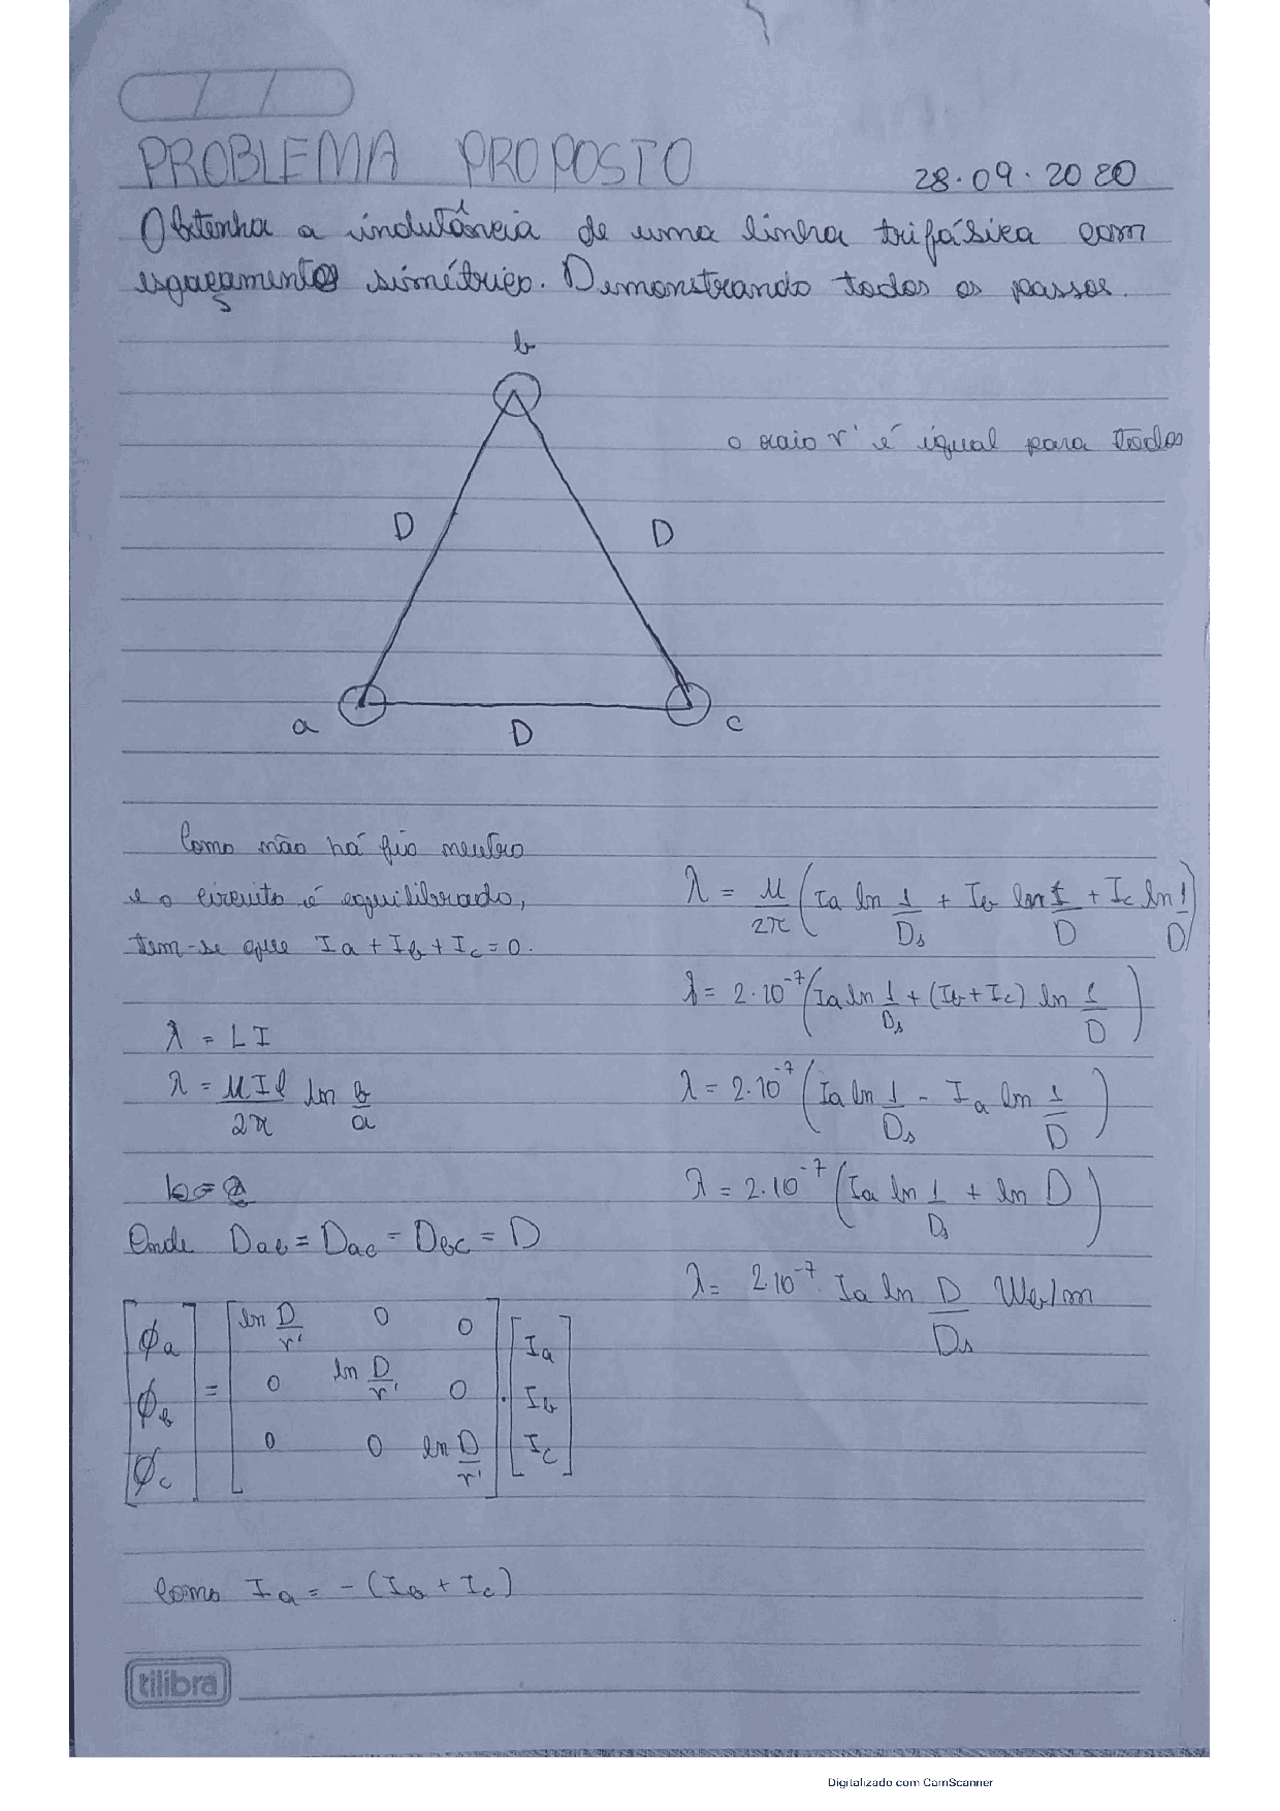 PROBLEMA PROPOSTO
28.09.2020
Obtenha a indutância de uma linha trifásica com
espaçamento simétrico. Demonstrando todos os passos.
b
o raio r' é igual para todos
D
D
a
D
c
Como não há fio neutro
e o circuito é equilibrado,
tem-se que Ia + Ib + Ic = 0.
λ = LI
λ = μIl/2π ln b/a
Onde Dab = Dac = Dbc = D
[φa φb φc] = [ln D/r' 0 0; 0 ln D/r' 0; 0 0 ln D/r'] . [Ia Ib Ic]
Como Ia = -(Ib + Ic)
λ = μ/2π (Ia ln 1/Ds + Ib ln 1/D + Ic ln 1/D)
λ = 2.10^-7 (Ia ln 1/Ds + (Ib + Ic) ln 1/D)
λ = 2.10^-7 (Ia ln 1/Ds - Ia ln 1/D)
λ = 2.10^-7 (Ia ln 1/Ds + ln D)
λ = 2.10^-7. Ia ln D/Ds Wb/m
tilibra
Digitalizado com CamScanner